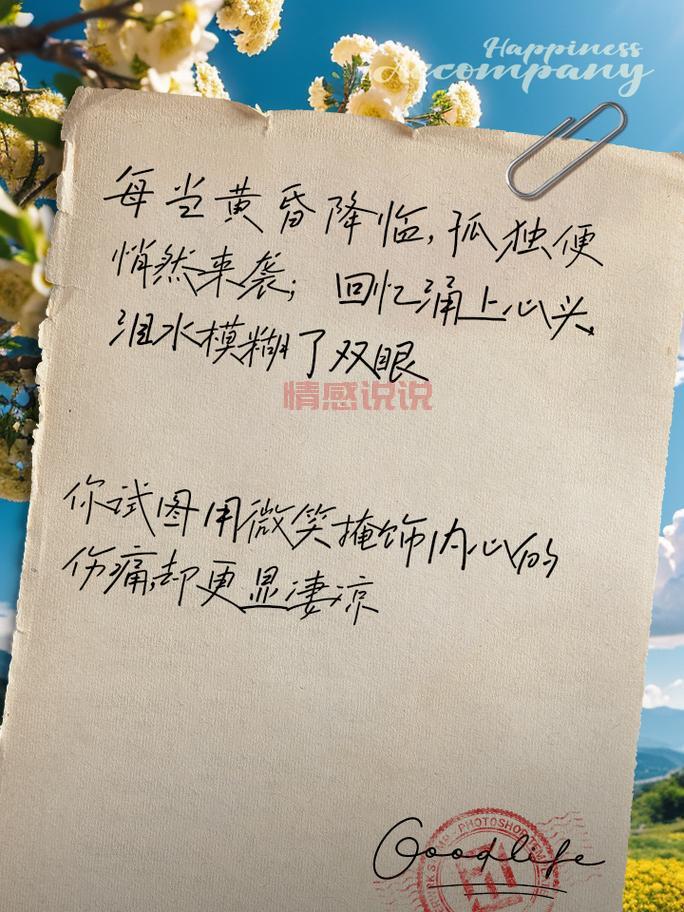 Happiness
Accompany
每当黄昏降临,孤独便
悄然来袭;回忆涌上心头,
泪水模糊了双眼
情感说说
你试图用微笑掩饰内心的
伤痛,却更显凄凉
PHOTOSHOP
Goodlife